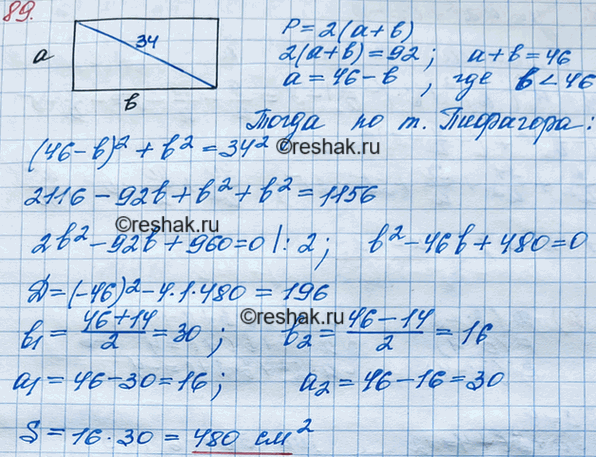 89.
a
34
в
P = 2(a+в)
2(a+в) = 92 ; a+в = 46
a = 46 - в , где в < 46
Тогда по т. Пифагора:
(46-в)² + в² = 34²
©reshak.ru
2116 - 92в + в² + в² = 1156
©reshak.ru
2в² - 92в + 960 = 0 |: 2 ; в² - 46в + 480 = 0
Д = (-46)² - 4·1·480 = 196
©reshak.ru
в₁ = (46+14)/2 = 30 ; в₂ = (46-14)/2 = 16
a₁ = 46 - 30 = 16 ; a₂ = 46 - 16 = 30
S = 16·30 = 480 см²